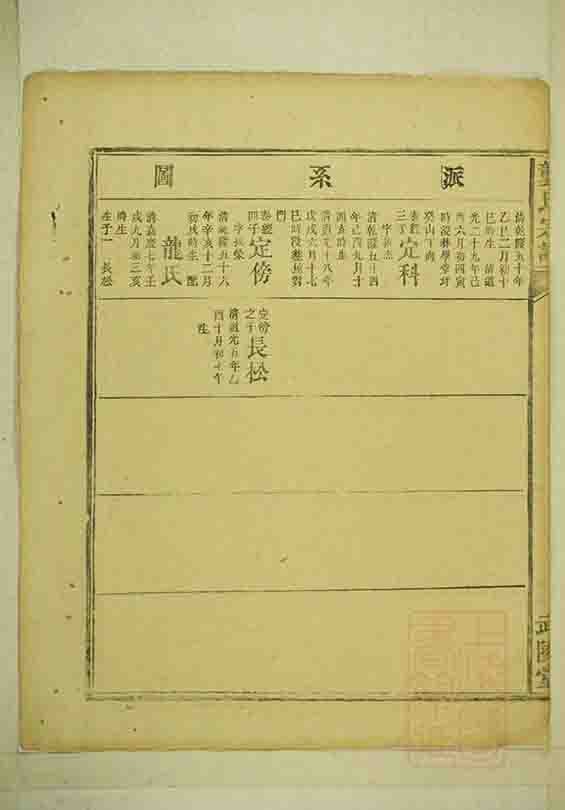 派系圖
清乾隆五十年
乙巳二月初十
巳時生 清道
光二十九年己
酉六月初四寅
時沒林學堂圩
癸山丁向
泰經
三子
定科
字
清乾隆五十四
年己酉九月十
四亥時生
清道光十八年
戊戌六月十七
巳時沒
門
泰經
四子
定傍
字 榮
清乾隆五十六
年辛亥十二月
初 戌時生 配
龍氏
清嘉慶七年壬
戌九月初三亥
時生
生子一 長松
定傍
之子
長松
清道光五年乙
酉十月初七午
生
武陵堂